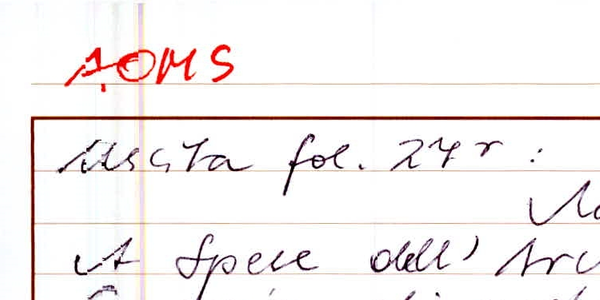 AOMS
Uscita fol. 24 r :
A Spese dell'